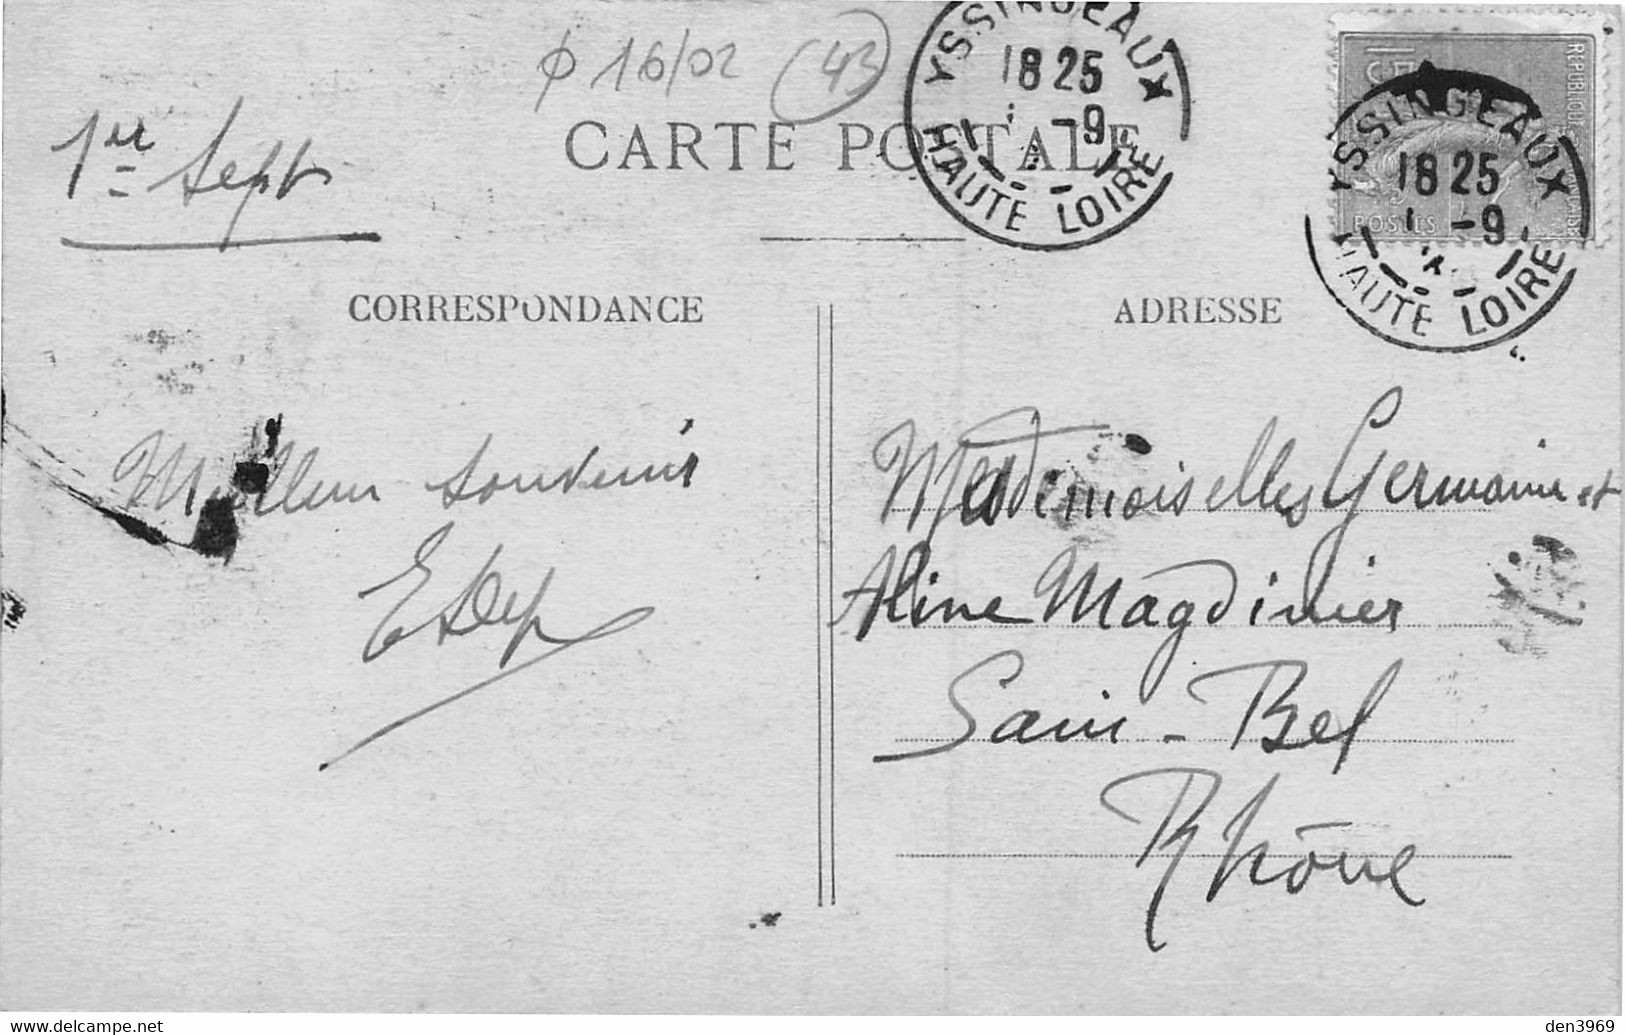 φ 16/02 (43)
YSSINGEAUX
18 25
1 -9
HAUTE LOIRE
REPUBLIQUE FRANÇAISE
15c
POSTES
YSSINGEAUX
18 25
1 -9
HAUTE LOIRE
1er Sept
CARTE POSTALE
CORRESPONDANCE
ADRESSE
Meilleur souvenir
Mesdemoiselles Germaine et
Aline Magdinier
Sain-Bel
Rhône
den3969